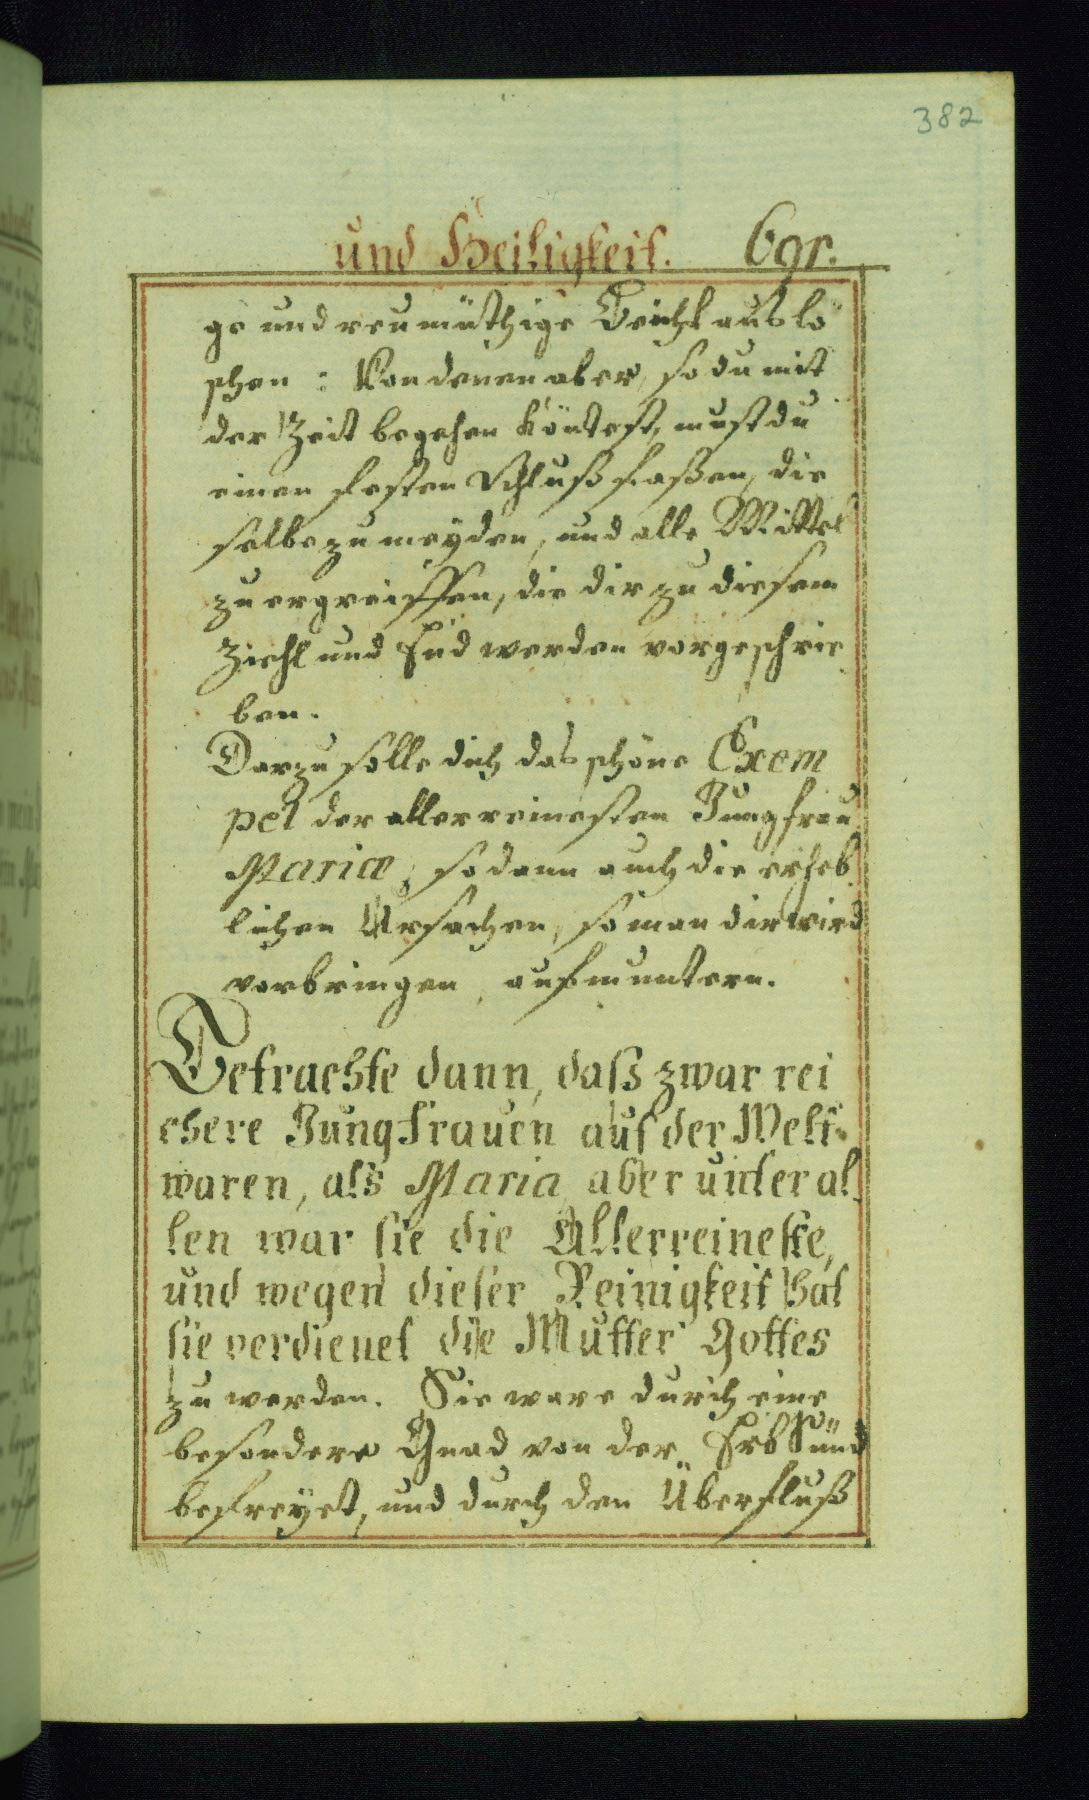 382
und Heiligkeit. 691.
ge und reumüthige Beicht auslö
schen: Von denen aber, so du mit
der Zeit begehen köntest, must du
einen festen Schluß faßen, die
selbe zu meyden, und alle Mittel
zu ergreiffen, die dir zu diesem
Ziehl und End werden vorgeschrie
ben.
Darzu solle dich das schöne Exem
pel der allerreinesten Jungfrau
Mariæ, so dann auch die erheb
lichen Ursachen, so man dir wird
vorbringen, aufmuntern.
Betrachte dann, daß zwar rei
chere Jungfrauen auf der Welt
waren, als Maria, aber unter al
len war sie die Allerreineste,
und wegen dieser Reinigkeit hat
sie verdienet die Mutter Gottes
zu werden. Sie ware durch eine
besondere Gnad von der Erb Sünd
befreyet, und durch den Überfluß